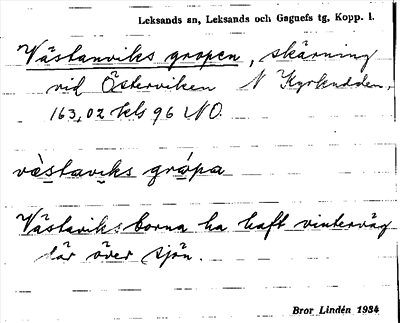 Leksands sn, Leksands och Gagnefs tg, Kopp. l.
Västanviks gropen, skärning
vid Österviken N Kyrkudden,
163,02 kls 96 NO.
vä̀stavıks grópa
Västaviksborna ha haft vinterväg
där över sjön.
Bror Lindén 1934